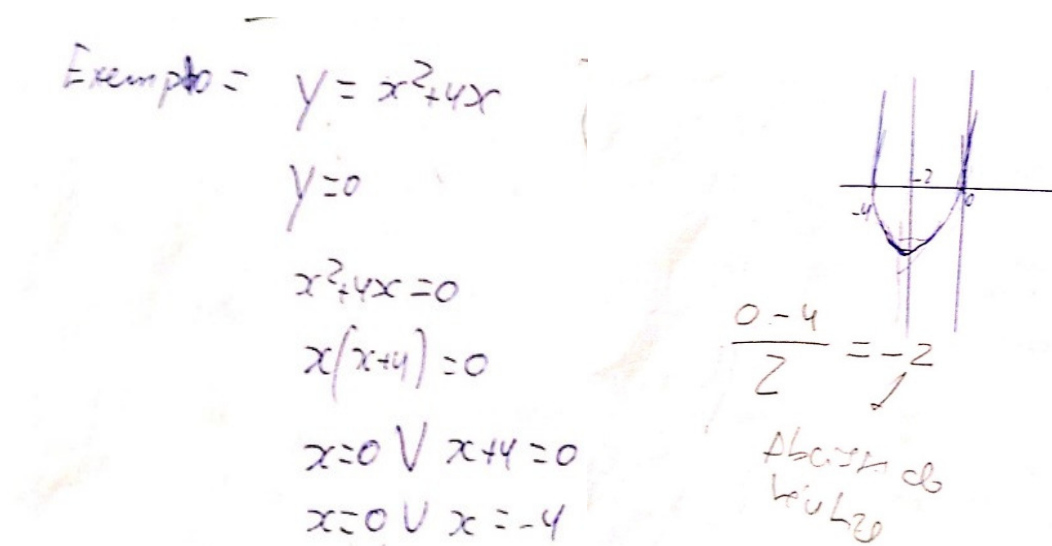 Exemplo = y = x²+4x
y=0
x²+4x=0
x(x+4)=0
x=0 V x+4=0
x=0 V x=-4
-2
-4
0
0-4
2
=-2
Abcissa do
vértice